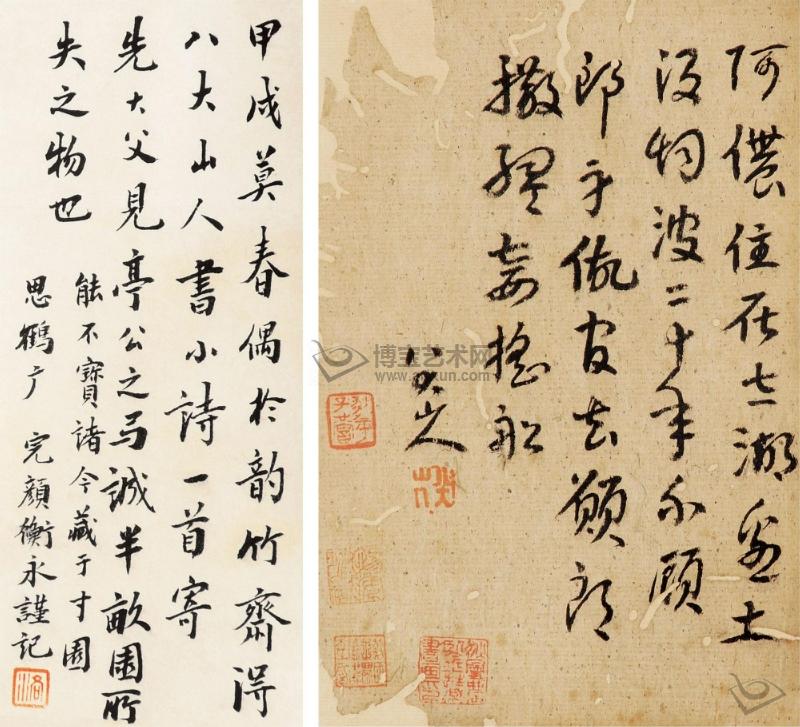 阿儂住在太湖邊出
沒烟波二十年不願
郎身做官去願郎
撒網妾搖船
八大山人
甲戌莫春偶於韵竹齋得
八大山人書小詩一首寄
先大父見亭公之弓誠半畝園所
失之物也
能不寶諸今藏于寸園
思鶴广 完顏衡永謹記
博宝艺术网
www.artxun.com